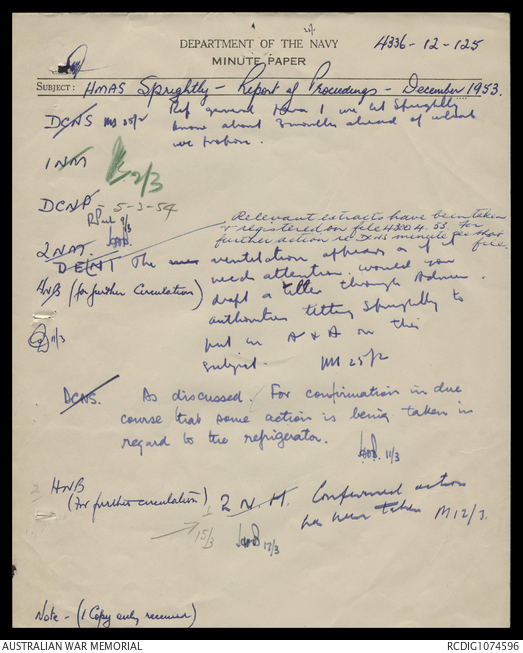 DEPARTMENT OF THE NAVY
4336-12-125
MINUTE PAPER
SUBJECT: HMAS Sprightly - Report of Proceedings - December 1953.
DCNS MB 25/2
Ref general Item 1 we let Sprightly
know about 3 months ahead of what
we propose.
1NM
2/3
DCNP - 5-3-54
9/3
Relevant extracts have been taken
& registered on file 4300.4.53. For
further action re DCNS minute see that
file.
2NM
DENT The ventilation appears as if it
need attention. Would you
HNB (for further circulation)
draft a letter through Admin.
authorities telling Sprightly to
11/3
put in A & A on this
subject. MB 25/2
DCNS. As discussed. For confirmation in due
course that some action is being taken in
regard to the refrigerator.
11/3
HNB
(for further circulation)
2 N.M. Confirmed action
has been taken M 12/3.
15/3
12/3
Note - (1 Copy only received)
AUSTRALIAN WAR MEMORIAL
RCDIG1074596